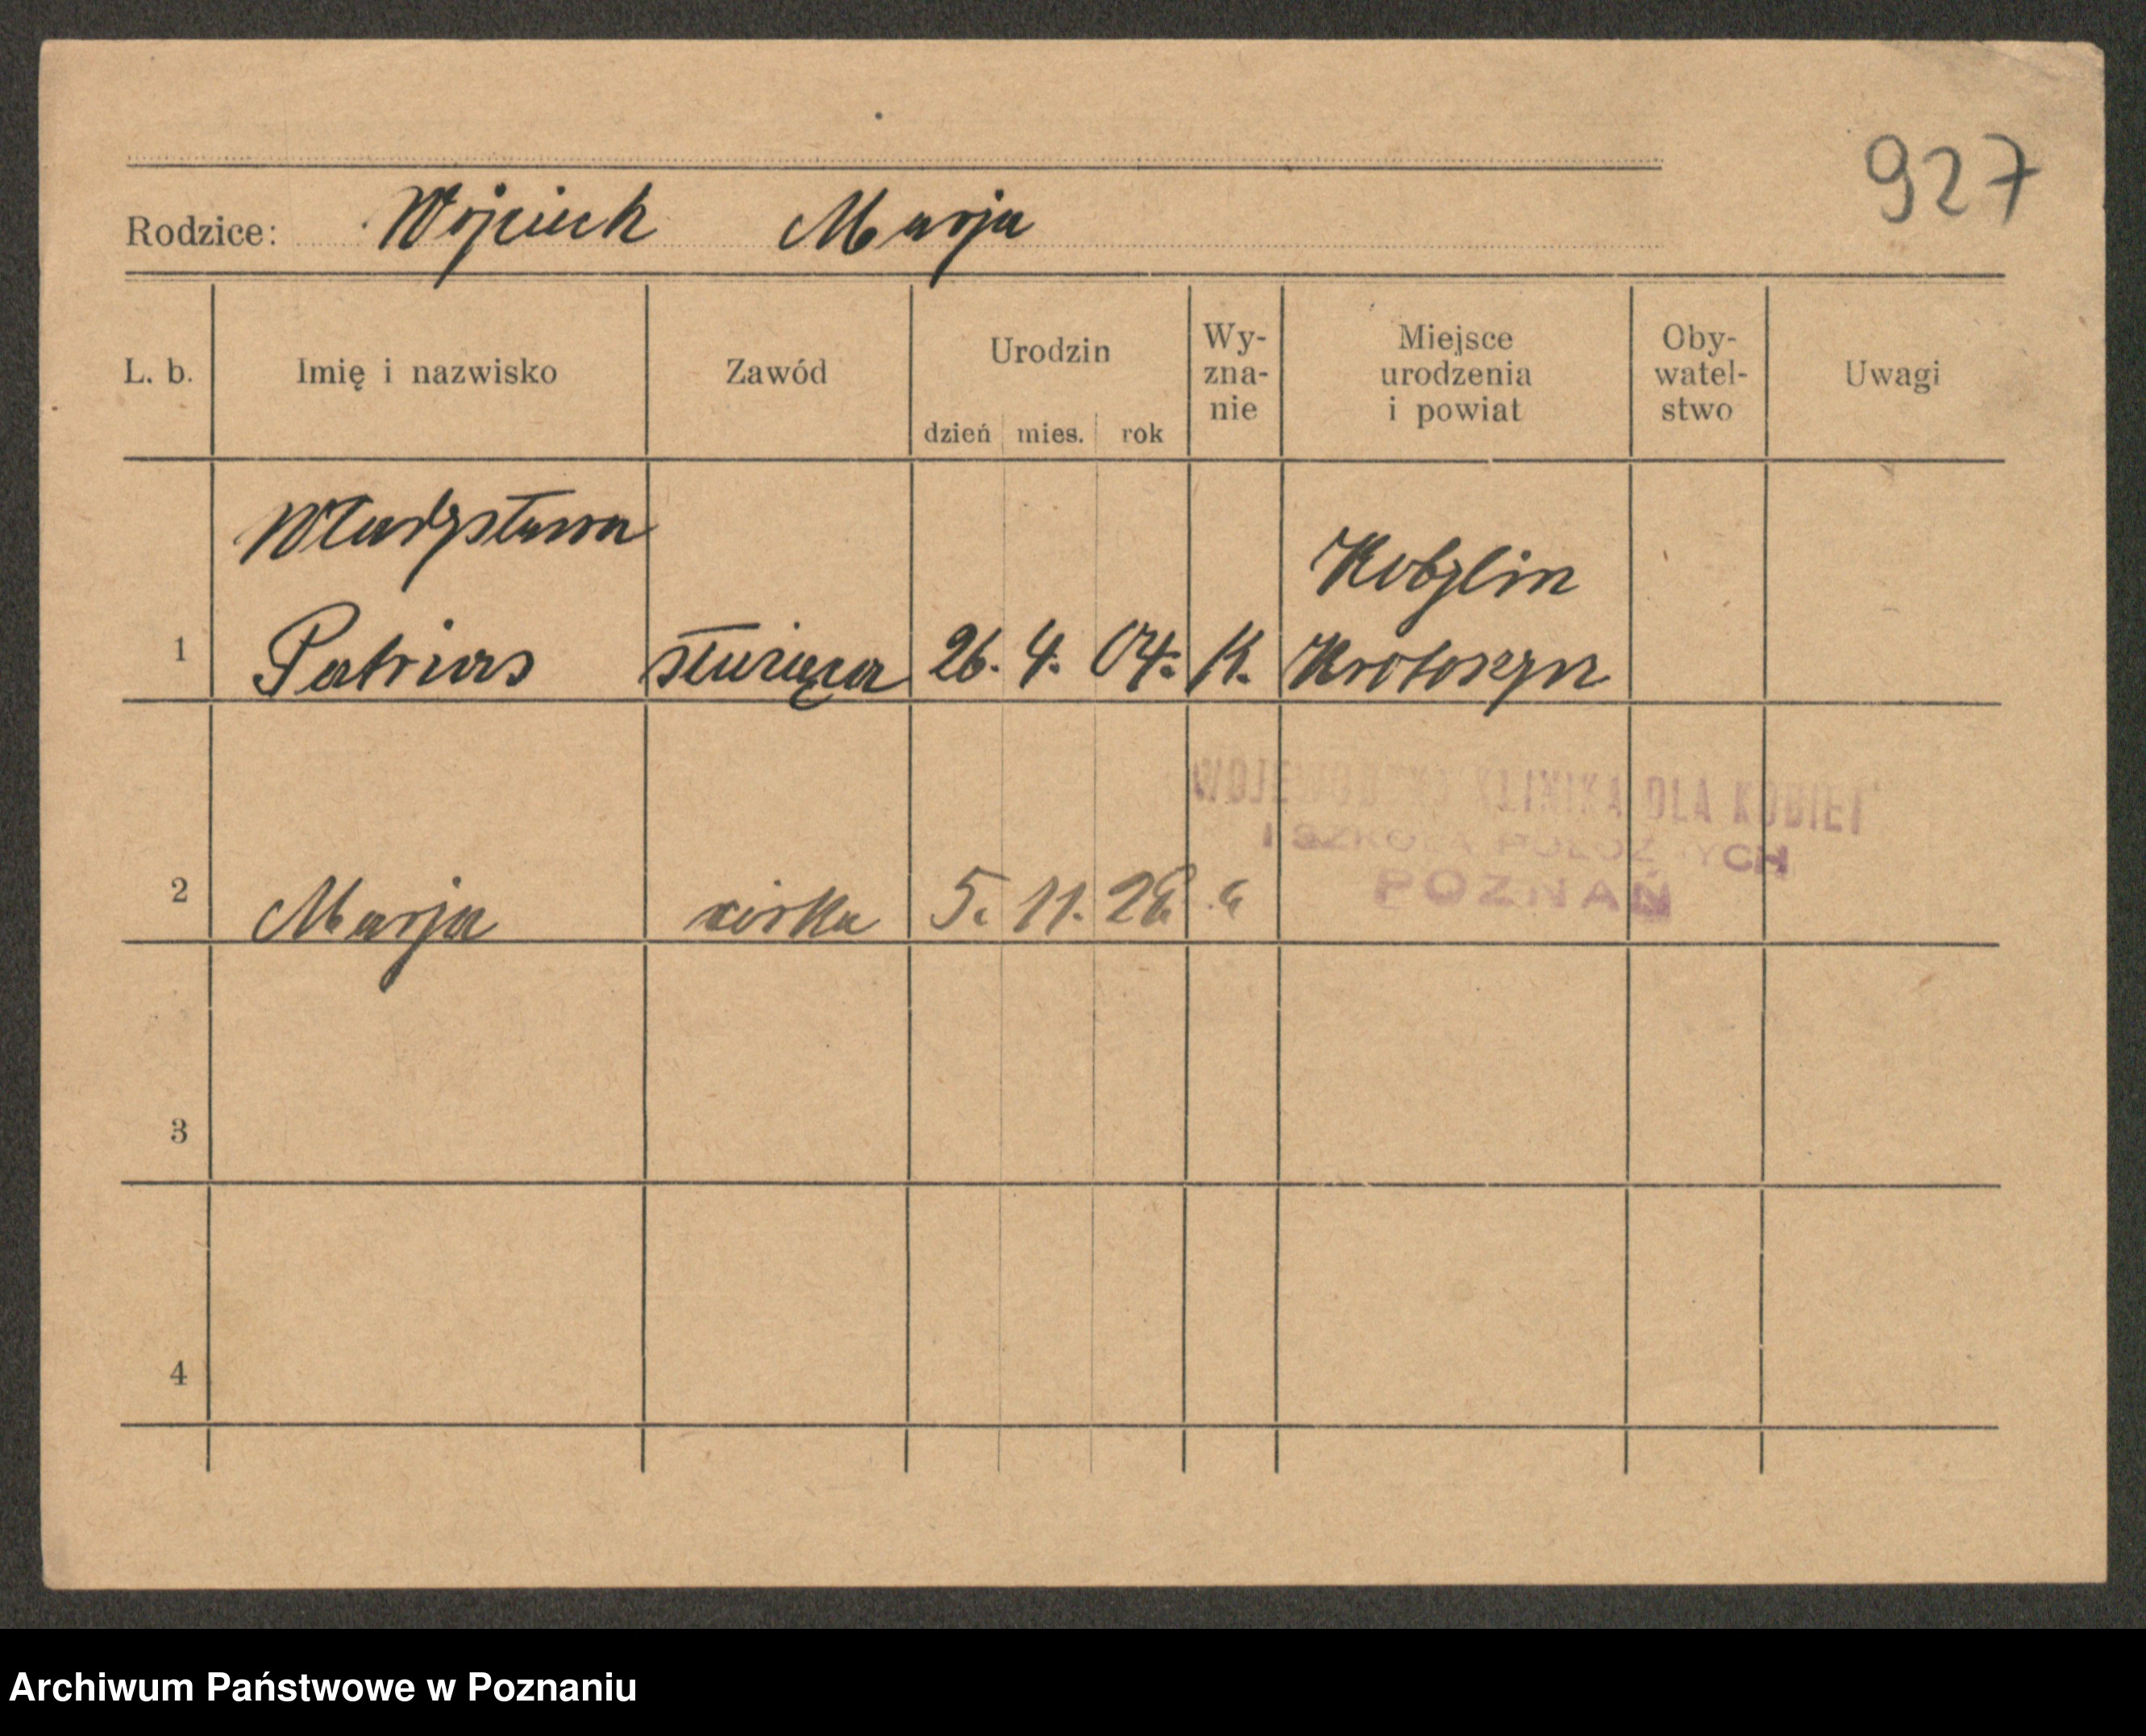 927
Rodzice: Wojciech Marja
L. b. Imię i nazwisko Zawód Urodzin dzień mies. rok Wy-zna-nie Miejsce urodzenia i powiat Oby-watel-stwo Uwagi
Władysława Kobylin
1 Patrias służąca 26. 4. 04. K. Krotoszyn
WOJEWÓDZKA KLINIKA DLA KOBIET
I SZKOŁA POŁOŻNYCH
POZNAŃ
2 Marja córka 5. 11. 28
3
4
Archiwum Państwowe w Poznaniu